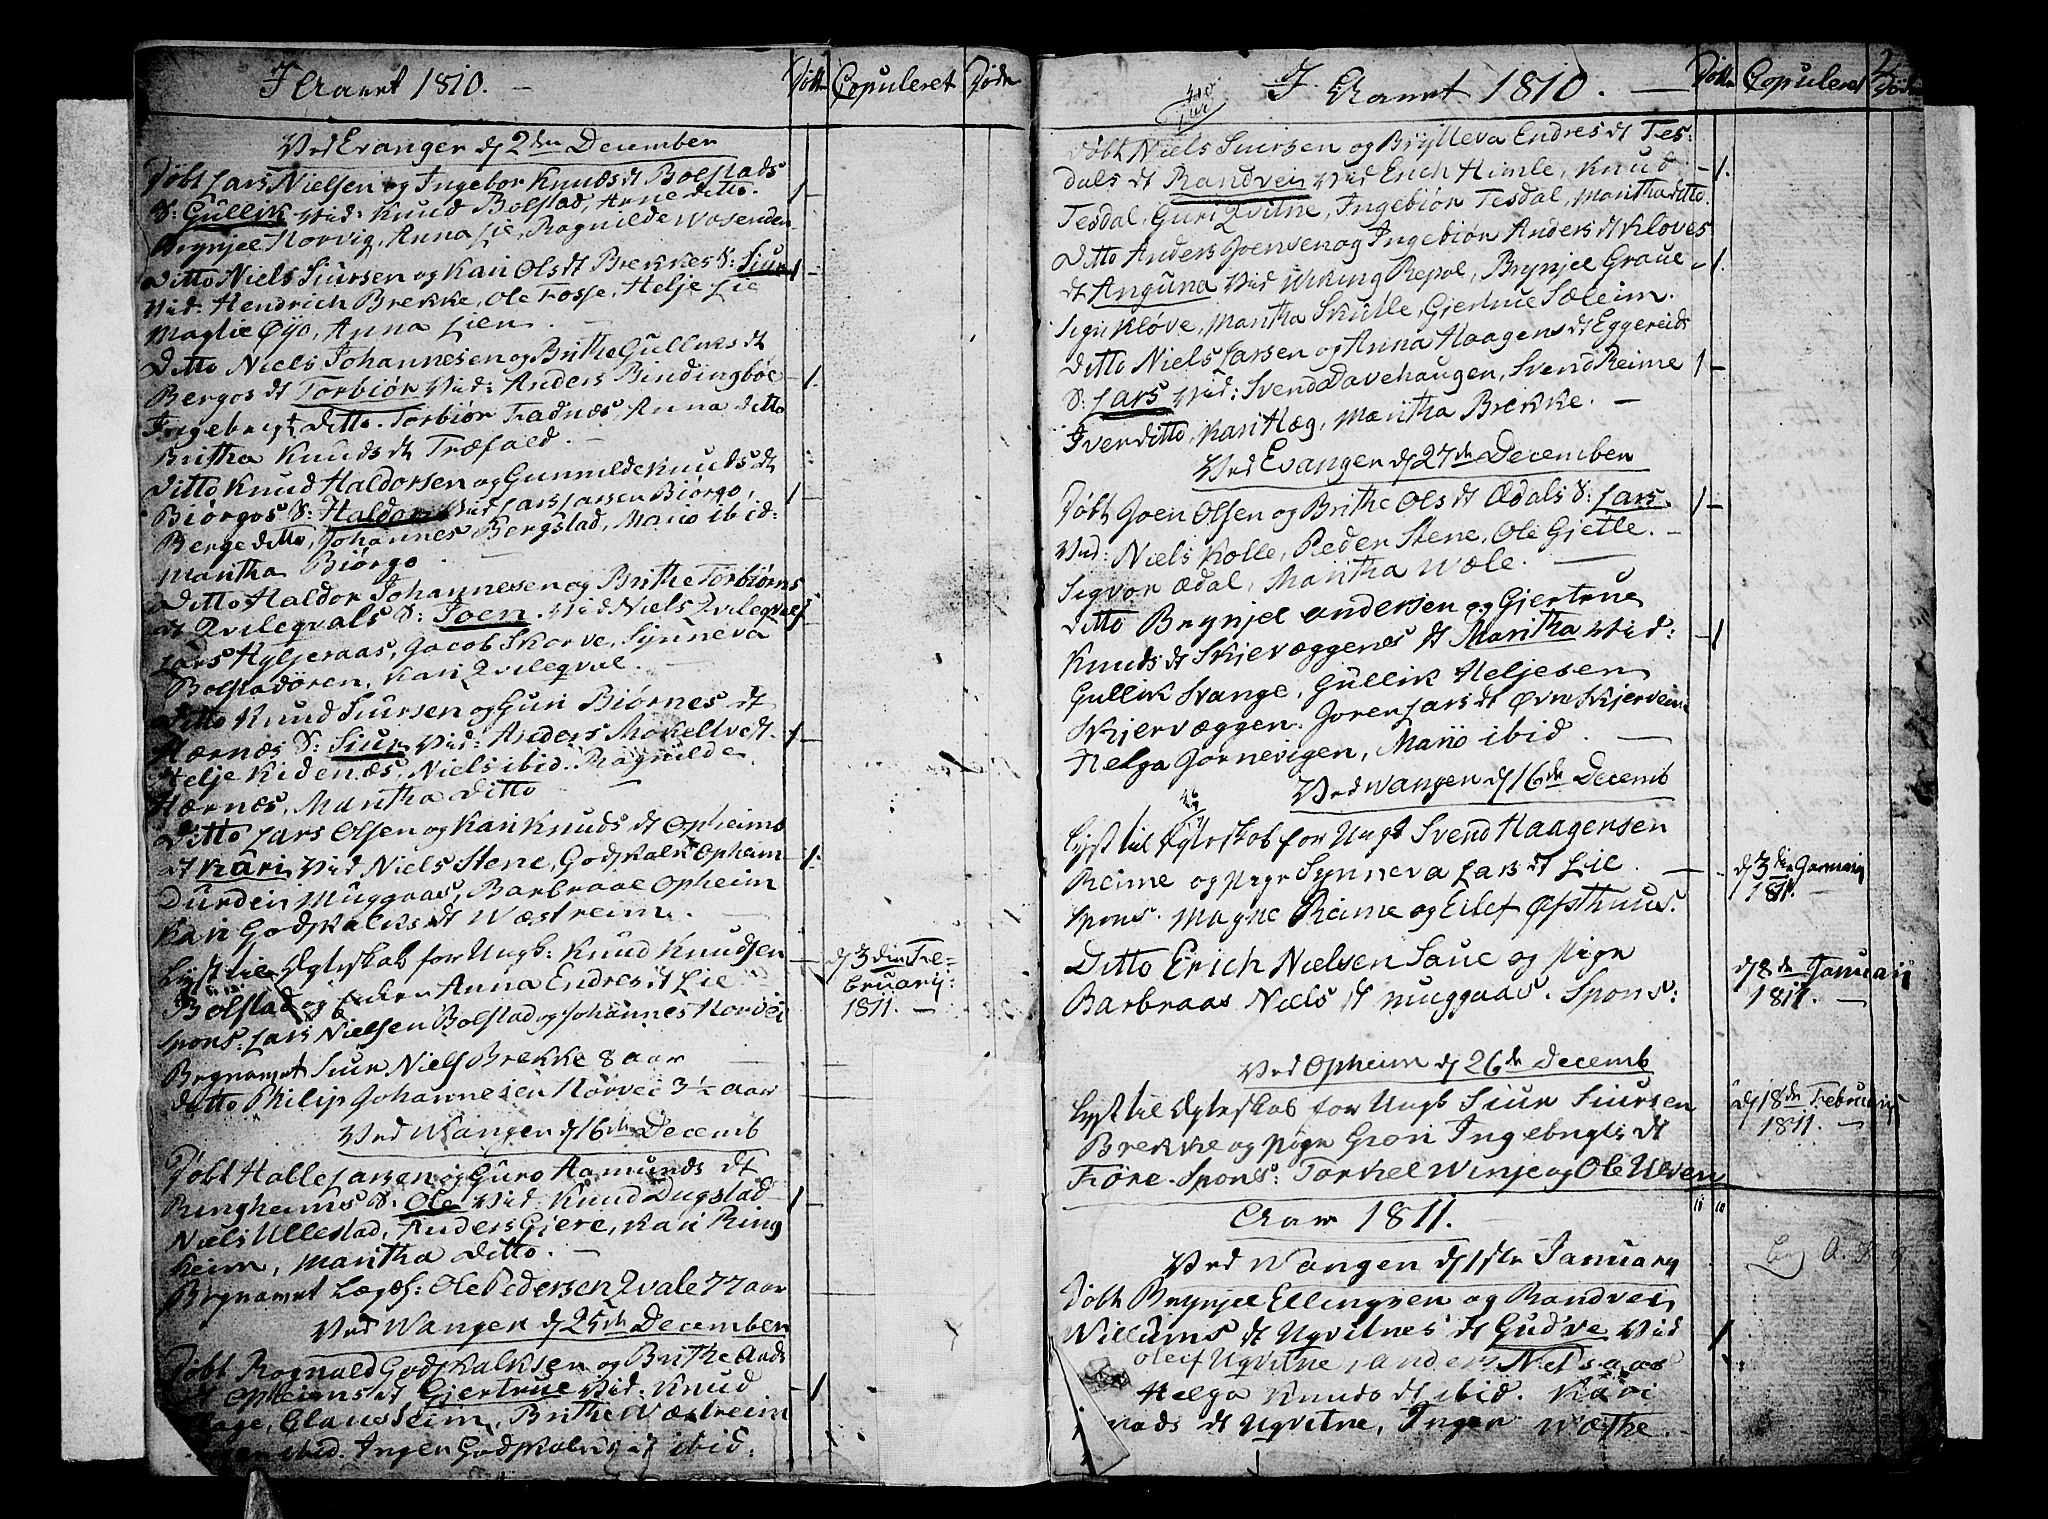 I Aaret 1810.
Døbte
Copuleret
Døde
Ved Evanger d 2den December
Døbt Lars Nielsen og Ingebor Knuds dt Bolstads
S: Gullik Vid: Knud Bolstad, Arne ditto.
Brynjel Horvig, Anna Lie, Ragnilde Wosenden
Ditto Niels Siursen og Kari Ols dt Brekkes S: Siur
Vid: Hendrich Brekke, Ole Fosse, Helje Lie
Maglie Øyo, Anna Lien.
Ditto Niels Johannesen og Brithe Gulliks dt
Bergos dt Torbiør Vid: Anders Rindingbøe
Ingebrigt ditto. Torbiør Fadnæs, Anna ditto
Britha Knuds dt Træfald.
Ditto Knud Haldorsen og Gunnilde Knuds dt
Biørgos S: Haldor Vid Lars Larsen Biørgo,
Berge ditto, Johannes Bergstad, Mario ibid:
Maritha Biørgo.
Ditto Haldor Johannesen og Brithe Torbiørns
dt Qvileqvals S: Joen. Vid Niels Qvileqval
Lars Hyljeraas, Jacob Skorve, Synneva
Bolstadøren, Kari Qvileqval.
Ditto Knud Siursen og Guri Biørnes dt
Hærnæs S: Siur Vid: Anders Mokeltvedt.
Helje Kidenæs, Niels ibid. Ragnilde
Hærnæs, Maritha Ditto
Ditto Lars Olsen og Kari Knuds dt Opheims
dt Kari, Vid Niels Stene, Godskalk Opheim
Durdei Muggaas, Barbraae Opheim
Kari Godskalks dt Wæstreim.
Lyst til Egteskab for Ungk: Knud Knudsen
Bolstad og Anna Endres dt Lie
Spons: Lars Nielsen Bolstad og Johannes Horvei
d 3die Fe-
bruarij:
1811.
Begravet Siur Niels Brekke 8 aar
ditto Philip Johannesen Horvei 3 1/2 aar
Ved Wangen d 16de Decemb
Døbt Halle Larsen og Guro Aamunds dt
Ringheims S: Ole Vid: Knud Dugstad
Niels Ullestad, Anders Gjere, Kari Ring
heim, Maritha Ditto.
Begravet Lægsl: Ole Pedersen Qvale 77 aar
Ved Wangen d 25de December
Døbt Rognald Godskalksen og Brithe Ands
dt Opheims dt Gjertrue Vid: Knud
Hage, Claus Seim, Brithe Wæstreim
ibid. Inger Godskalks dt ibid:
I Aaret 1810.
Døbte
Copuleret
Døde
Døbt Niels Siursen og Brylleva Endres dt Tes-
dals dt Randvei Vid Erich Himle, Knud
Tesdal, Guri Qvitne, Ingebiør Tesdal, Maritha ditto.
Ditto Anders Joensen og Ingebiør Anders dt Kløves
dt Anguna Vid Wiking Repal, Brynjel Graue
Sigri Kløve, Maritha Skulle, Gjertrue Sæleim.
Ditto Niels Larsen og Anna Haagens dt Eggereids
S: Lars Vid: Svend Davehaugen, Svend Reime
Iver ditto, Kari Hæg, Maritha Brekke.
Ved Evanger d 27de December
Døbt Joen Olsen og Brithe Ols dt Ædals S: Lars.
Vid: Niels Kolle, Peder Stene, Ole Gjelle.
Sigvor Ædal, Maritha Wæle.
Ditto Brynjel Andersen og Gjertrue
Knuds dt Skjervæggenes dt Maritha Vid:
Gullik Svange, Gullik Heljesen
Skjervæggen. Joren Lars dt Øvre Skjerveim
Helga Jornevigen, Mario ibid.
Ved Wangen d 16de Decemb
Lyst til Egteskab for Ungk Svend Haagensen
Reime og Pige Synneva Lars dt Lie.
Spons. Magne Reime og Eilef Øfsthuus.
d 3die Januarij
1811.
Ditto Erich Nielsen Saue og Pige
Barbraae Niels dt Muggaas. Spons:
d 8de Januarij
1811.
Ved Opheim d 26de Decemb
Lyst til Egteskab for Ungk Siur Siursen
Brekke og Pige Gron Ingebrigts dt
Føre. Spons: Torkel Winje og Ole Ulven
d 18de Februarij
1811.
Aar 1811.
Ved Wangen d 1ste January
Døbt Brynjel Ellingsen og Randvei
Willums dt Ugvitnes dt Gudve Vid
Oleif Ugvitne, Anders Nelsaas
Helga Knuds dt ibid. Kari
dt Ugvitne, Inger Wæthe.